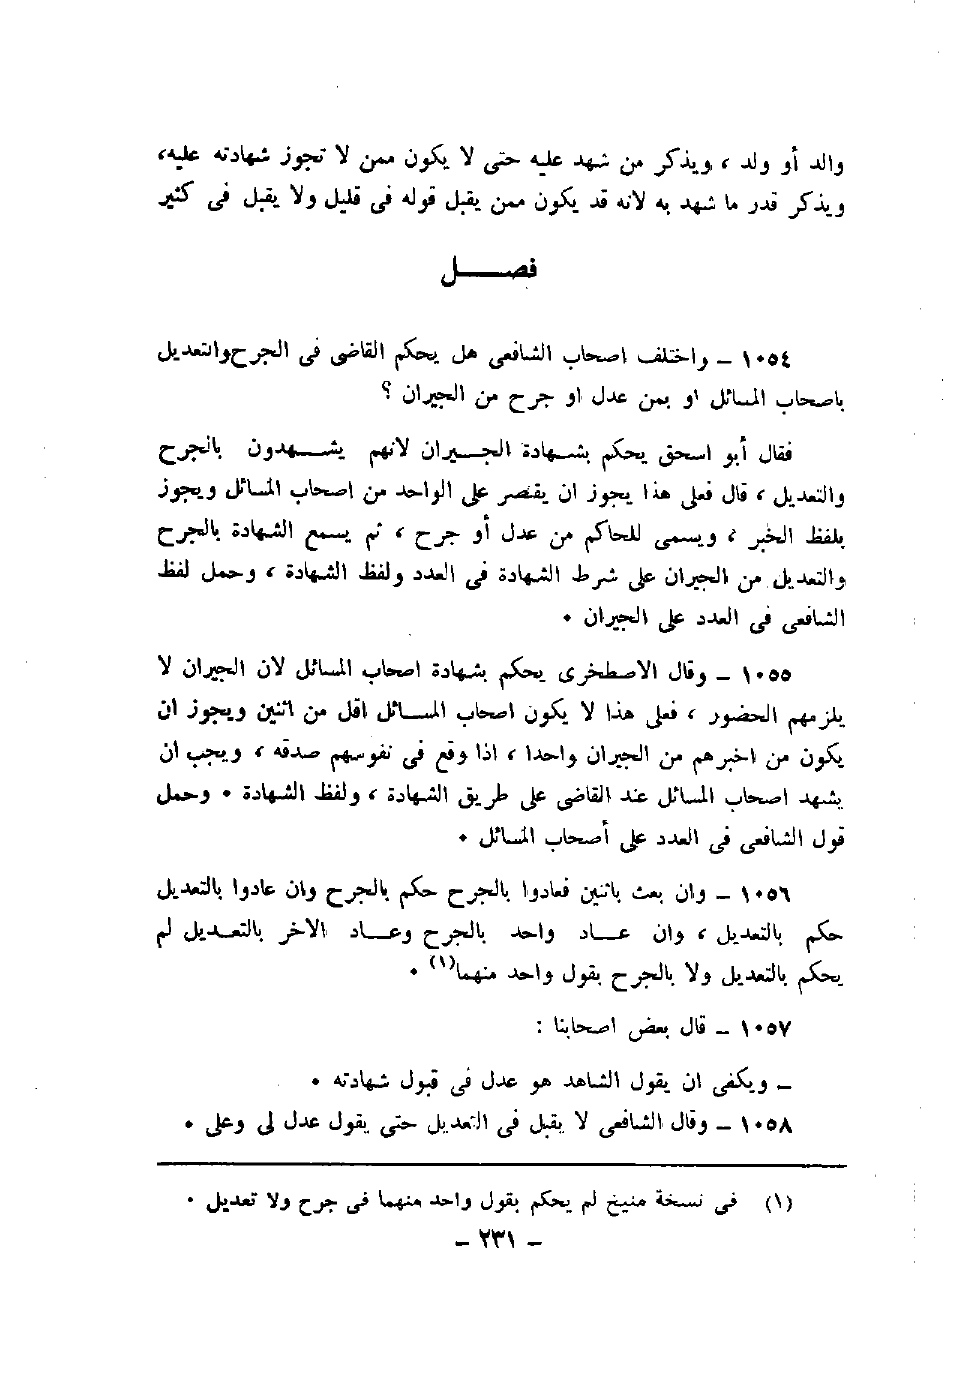 والد أو ولد ، ويذكر من شهد عليه حتى لا يكون ممن لا تجوز شهادته عليه،
ويذكر قدر ما شهد به لانه قد يكون ممن يقبل قوله فى قليل ولا يقبل فى كثير
فصـــــل
١٠٥٤ ــ واختلف اصحاب الشافعى هل يحكم القاضى فى الجرح والتعديل
باصحاب المسائل او بمن عدل او جرح من الجيران ؟
فقال أبو اسحق يحكم بشـهادة الجـــيران لانهم يشـــهدون بالجرح
والتعديل ، قال فعلى هذا يجوز ان يقتصر على الواحد من اصحاب المسائل ويجوز
بلفظ الخبر ، ويسمى للحاكم من عدل أو جرح ، ثم يسمع الشهادة بالجرح
والتعديل من الجيران على شرط الشهادة فى العدد ولفظ الشهادة ، وحمل لفظ
الشافعى فى العدد على الجيران ٠
١٠٥٥ ــ وقال الاصطخرى يحكم بشهادة اصحاب المسائل لان الجيران لا
يلزمهم الحضور ، فعلى هذا لا يكون اصحاب المســائل اقل من اثنين ويجوز ان
يكون من اخبرهم من الجيران واحدا ، اذا وقع فى نفوسهم صدقه ، ويجب ان
يشهد اصحاب المسائل عند القاضى على طريق الشهادة ، ولفظ الشهادة ٠ وحمل
قول الشافعى فى العدد على أصحاب المسائل ٠
١٠٥٦ ــ وان بعث باثنين فعادوا بالجرح حكم بالجرح وان عادوا بالتعديل
حكم بالتعديل ، وان عــاد واحد بالجرح وعــاد الاخر بالتعـديل لم
يحكم بالتعديل ولا بالجرح بقول واحد منهما(١) ٠
١٠٥٧ ــ قال بعض اصحابنا :
ــ ويكفى ان يقول الشاهد هو عدل فى قبول شهادته ٠
١٠٥٨ ــ وقال الشافعى لا يقبل فى التعديل حتى يقول عدل لى وعلى ٠
(١) فى نسخة منيخ لم يحكم بقول واحد منهما فى جرح ولا تعديل ٠
ــ ٢٣١ ــ